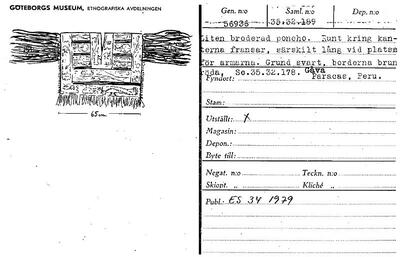 GÖTEBORGS MUSEUM, ETNOGRAFISKA AVDELNINGEN
65 cm.
Gen. n:o Saml. n:o Dep. n:o
56936 35.32.189
Liten broderad poncho. Runt kring kan-
terna fransar, särskilt lång vid platsen
för armarna. Grund svart, borderna brun
röda, Se.35.32.178. Gåva
Fyndort: Paracas, Peru.
Stam:
Utställt: X
Magasin:
Depon.:
Byte till:
Negat. n:o Teckn. n:o
Skiopt. „ Kliché „
Publ.: ES 34 1979